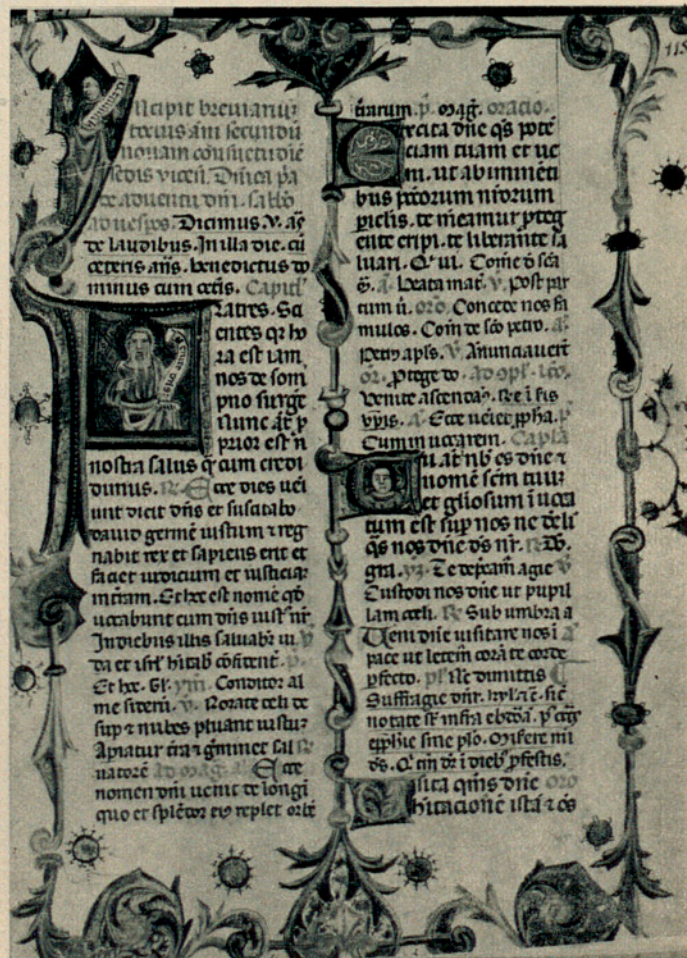 115
ncipit breuiariuȝ
noctuis ani secundū
nouam consuetudiē
sedis vicen. Dnica pa
de aduentu dni. sabbo
ad uesp̄os. Dicimus. v. añ
de laudibus. In illa die. cū
ceteris añis. benedictus do
minus cum cetīs. Capitl̄
Fratres. Sci
entes qr ho
ra est iam
nos de som
pno surge
Nunc at p
prior est n
nostra salus q̄ cum credi
dimus. Ecce dies ueī
unt dicit dn̄s et suscitabo
dauid germē iustum ⁊ reg
nabit rex et sapiens erit et
faciet iudicium et iusticiaȝ
in tram. Et hoc est nomē qd̄
uocabunt eum dn̄s iust' nr̄
In diebus illis saluabit iu
da et isrl' hītab' cōfident̄.
Et hoc. Conditor al
me siderū. v. Rorate celi de
sup ⁊ nubes pluant iustuȝ
Apiatur tr̄a ⁊ g̓minet sal
uatorē ad mag. a. Ecce
nomen dn̄i uenit de longī
quo et splēdor eiȝ replet orbē
tirarum. p̄. mag̓. oracio.
Excita dn̄e q̄s potē
ciam tuam et ue
ni. ut ab imminēti
bus pctōrum nr̄orum
p̄iclis. te mēamur p̄teg
ente eripi. te liberante sa
luari. Q̄ ui. Com̄e ō scā
a. beata mat̄. v. post par
tum ū. oro. Concede nos fa
mulos. Com de sc̄o petro. a.
Petr̄ apls. v. Anunciauer̄t
or. p̄tege do. ad opl. lco.
Venite ascendaȝ.
a. Ecce ueīet p̄pha. p̄
Cum inuocarem. Capl̄a
Tu at nb es dn̄e ⁊
nomē scm̄ tuuȝ
et glīosum īuoca
tum est sup nos ne deli
q̄s nos dn̄e ds nr̄. Do.
gra. Te dep̄cam̄ agie
Custodi nos dn̄e ut pupil
lam oculi. Sub umbra a
Ueni dn̄e uisitare nos ī
pace ut letem̄ corā te corde
p̄fecto. ps Nc dimittis
Suffragie
notate infra ebdōa.
epphīe sine p̄lo. Misere mi
ds. ī dieb' p̄festis.
isita q̄mis dn̄e oro
hītacionē istā ⁊ ōs